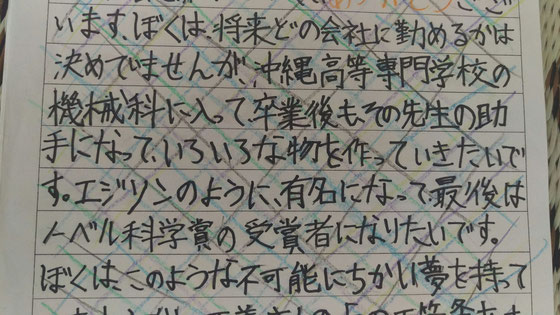 ありがとうござ
います、ぼくは、将来どの会社に勤めるかは
決めていませんが、沖縄高等専門学校の
機械科に入って、卒業後も、その先生の助
手になって、いろいろな物を作っていきたいで
す。エジソンのように、有名になって、最後は
ノーベル科学賞の受賞者になりたいです。
ぼくは、このような不可能にちかい夢を持って